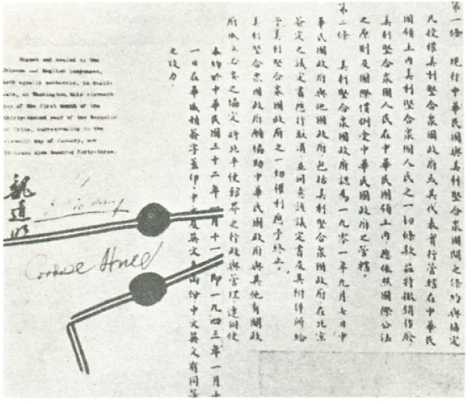 Signed and sealed in the
Chinese and English languages,
both equally authentic, in dupli-
cate, at Washington, this eleventh
day of the first month of the
thirty-second year of the Republic
of China, corresponding to the
eleventh day of January, one
thousand nine hundred forty-three.
魏道明
Cordell Hull
第一條 現行中華民國與美利堅合眾國間之條約與協定
凡授權美利堅合眾國政府或其代表實行管轄在中華民
國領土內美利堅合眾國人民之一切條款茲特撤銷作廢
美利堅合眾國人民在中華民國領土內應依照國際公法
之原則及國際慣例受中華民國政府之管轄
第二條 美利堅合眾國政府認為一九零一年九月七日中
華民國政府與他國政府包括美利堅合眾國政府在北京
簽定之議定書應行取消並同意該議定書及其附件所給
予美利堅合眾國政府之一切權利應予終止
美利堅合眾國政府願協助中華民國政府與其他有關政
府成立必要之協定將北平使館界之行政與管理連同使
本約於中華民國三十二年 月十一 即一九四三年一月十
一日在華盛頓簽字蓋印中 英文 兩份中文英文有同等
之效力